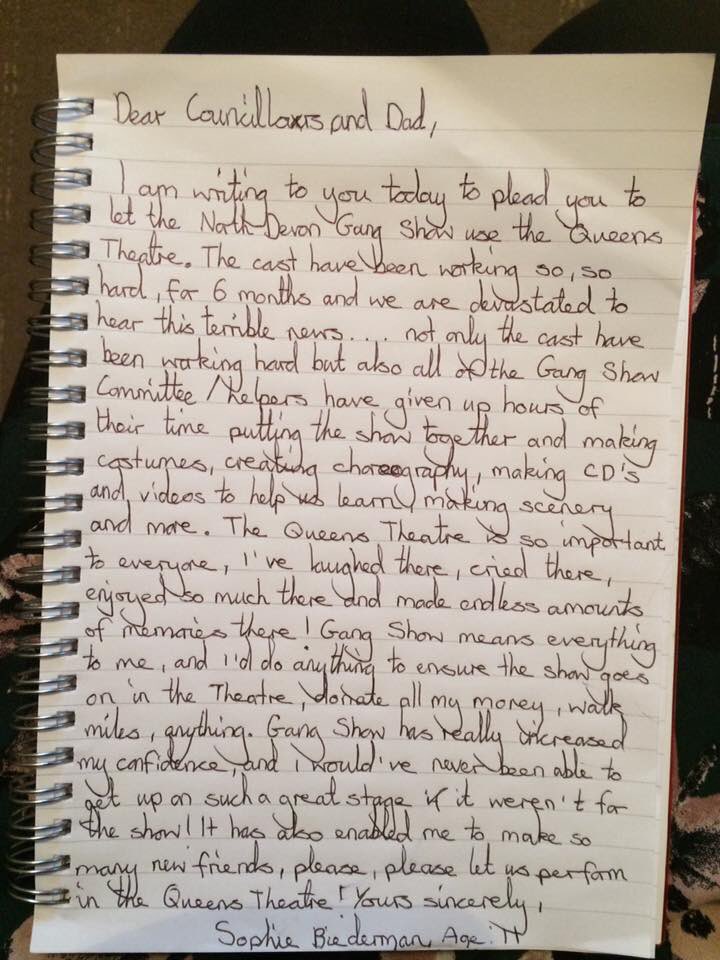 Dear Councillors and Dad,
I am writing to you today to plead you to
let the North Devon Gang Show use the Queens
Theatre. The cast have been working so, so
hard, for 6 months and we are devastated to
hear this terrible news.... not only the cast have
been working hard but also all of the Gang Show
Committee / helpers have given up hours of
their time putting the show together and making
costumes, creating choreography, making CD's
and videos to help us learn, making scenery
and more. The Queens Theatre is so important
to everyone, I've laughed there, cried there,
enjoyed so much there and made endless amounts
of memories there! Gang Show means everything
to me, and I'd do anything to ensure the show goes
on in the Theatre, donate all my money, walk
miles, anything. Gang Show has really increased
my confidence, and i would've never been able to
get up on such a great stage if it weren't for
the show! It has also enabled me to make so
many new friends, please, please let us perform
in the Queens Theatre! Yours sincerely,
Sophie Biederman, Age: 11